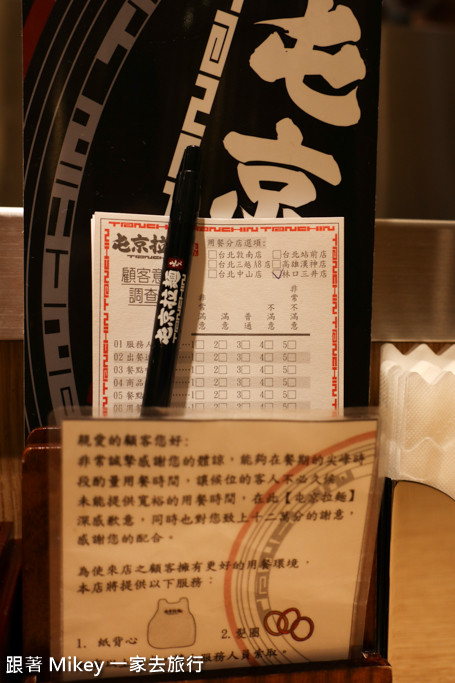 屯京
屯京拉
TONCHIN
顧客意
調查
屯京拉麺
用餐分店選項:
台北敦南店
台北站前店
台北三越A8店
高雄漢神店
台北中山店
林口三井店
非常滿意
滿意
普通
不滿意
非常不滿意
01 服務人 1 2 3 4 5
02 出餐速 1 2 3 4 5
03 餐點 1 2 3 4 5
04 商品 1 2 3 4 5
05 餐點 1 2 3 4 5
親愛的顧客您好:
非常誠摯感謝您的體諒，能夠在餐期的尖峰時
段酌量用餐時間，讓候位的客人不必久候。
未能提供寬裕的用餐時間，在此【屯京拉麵】
深感歉意，同時也對您致上十二萬分的謝意，
感謝您的配合。
為使來店之顧客擁有更好的用餐環境，
本店將提供以下服務：
1. 紙背心
2. 髮圈
服務人員索取。
跟著 Mikey 一家去旅行